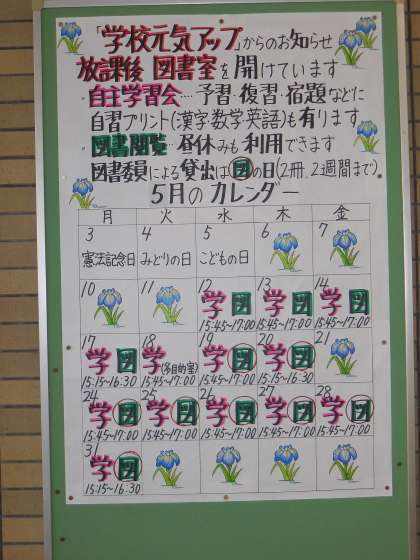 「学校元気アップ」からのお知らせ
放課後 図書室を開けています
自主学習会…予習・復習・宿題などに
自習プリント(漢字数学英語)も有ります
図書閲覧…昼休みも利用できます
図書委員による貸出は図の日(2冊、2週間まで)
5月のカレンダー
月 火 水 木 金
3 4 5 6 7
憲法記念日 みどりの日 こどもの日
10 11 12 13 14
学図 学図 学図
15:45~17:00 15:45~17:00 15:45~17:00
17 18 19 20 21
学図 学(多目的室) 学図 学図
15:15~16:30 15:45~17:00 15:45~17:00 15:15~16:30
24 25 26 27 28
学図 学図 学図 学図 学図
15:45~17:00 15:45~17:00 15:45~17:00 15:45~17:00 15:45~17:00
31
学図
15:15~16:30